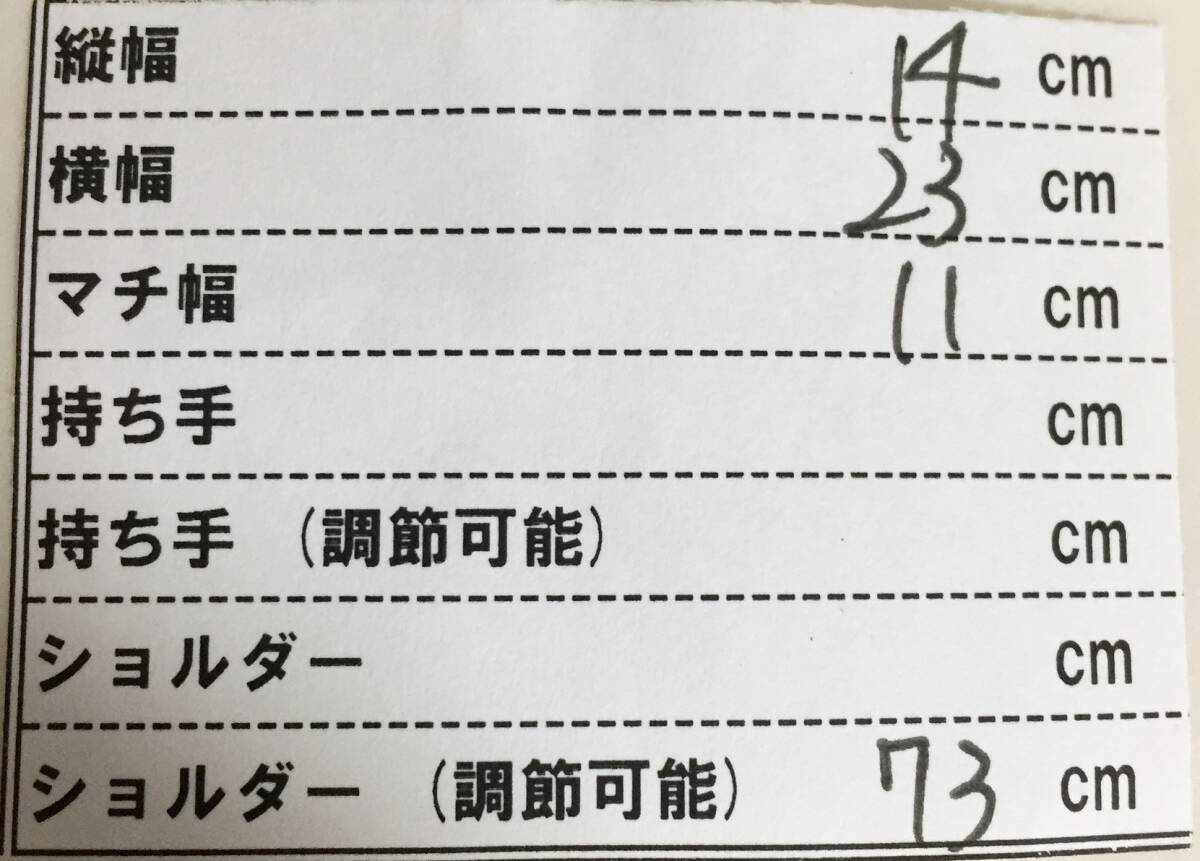 縦幅 14 cm
横幅 23 cm
マチ幅 11 cm
持ち手 cm
持ち手 (調節可能) cm
ショルダー cm
ショルダー (調節可能) 73 cm